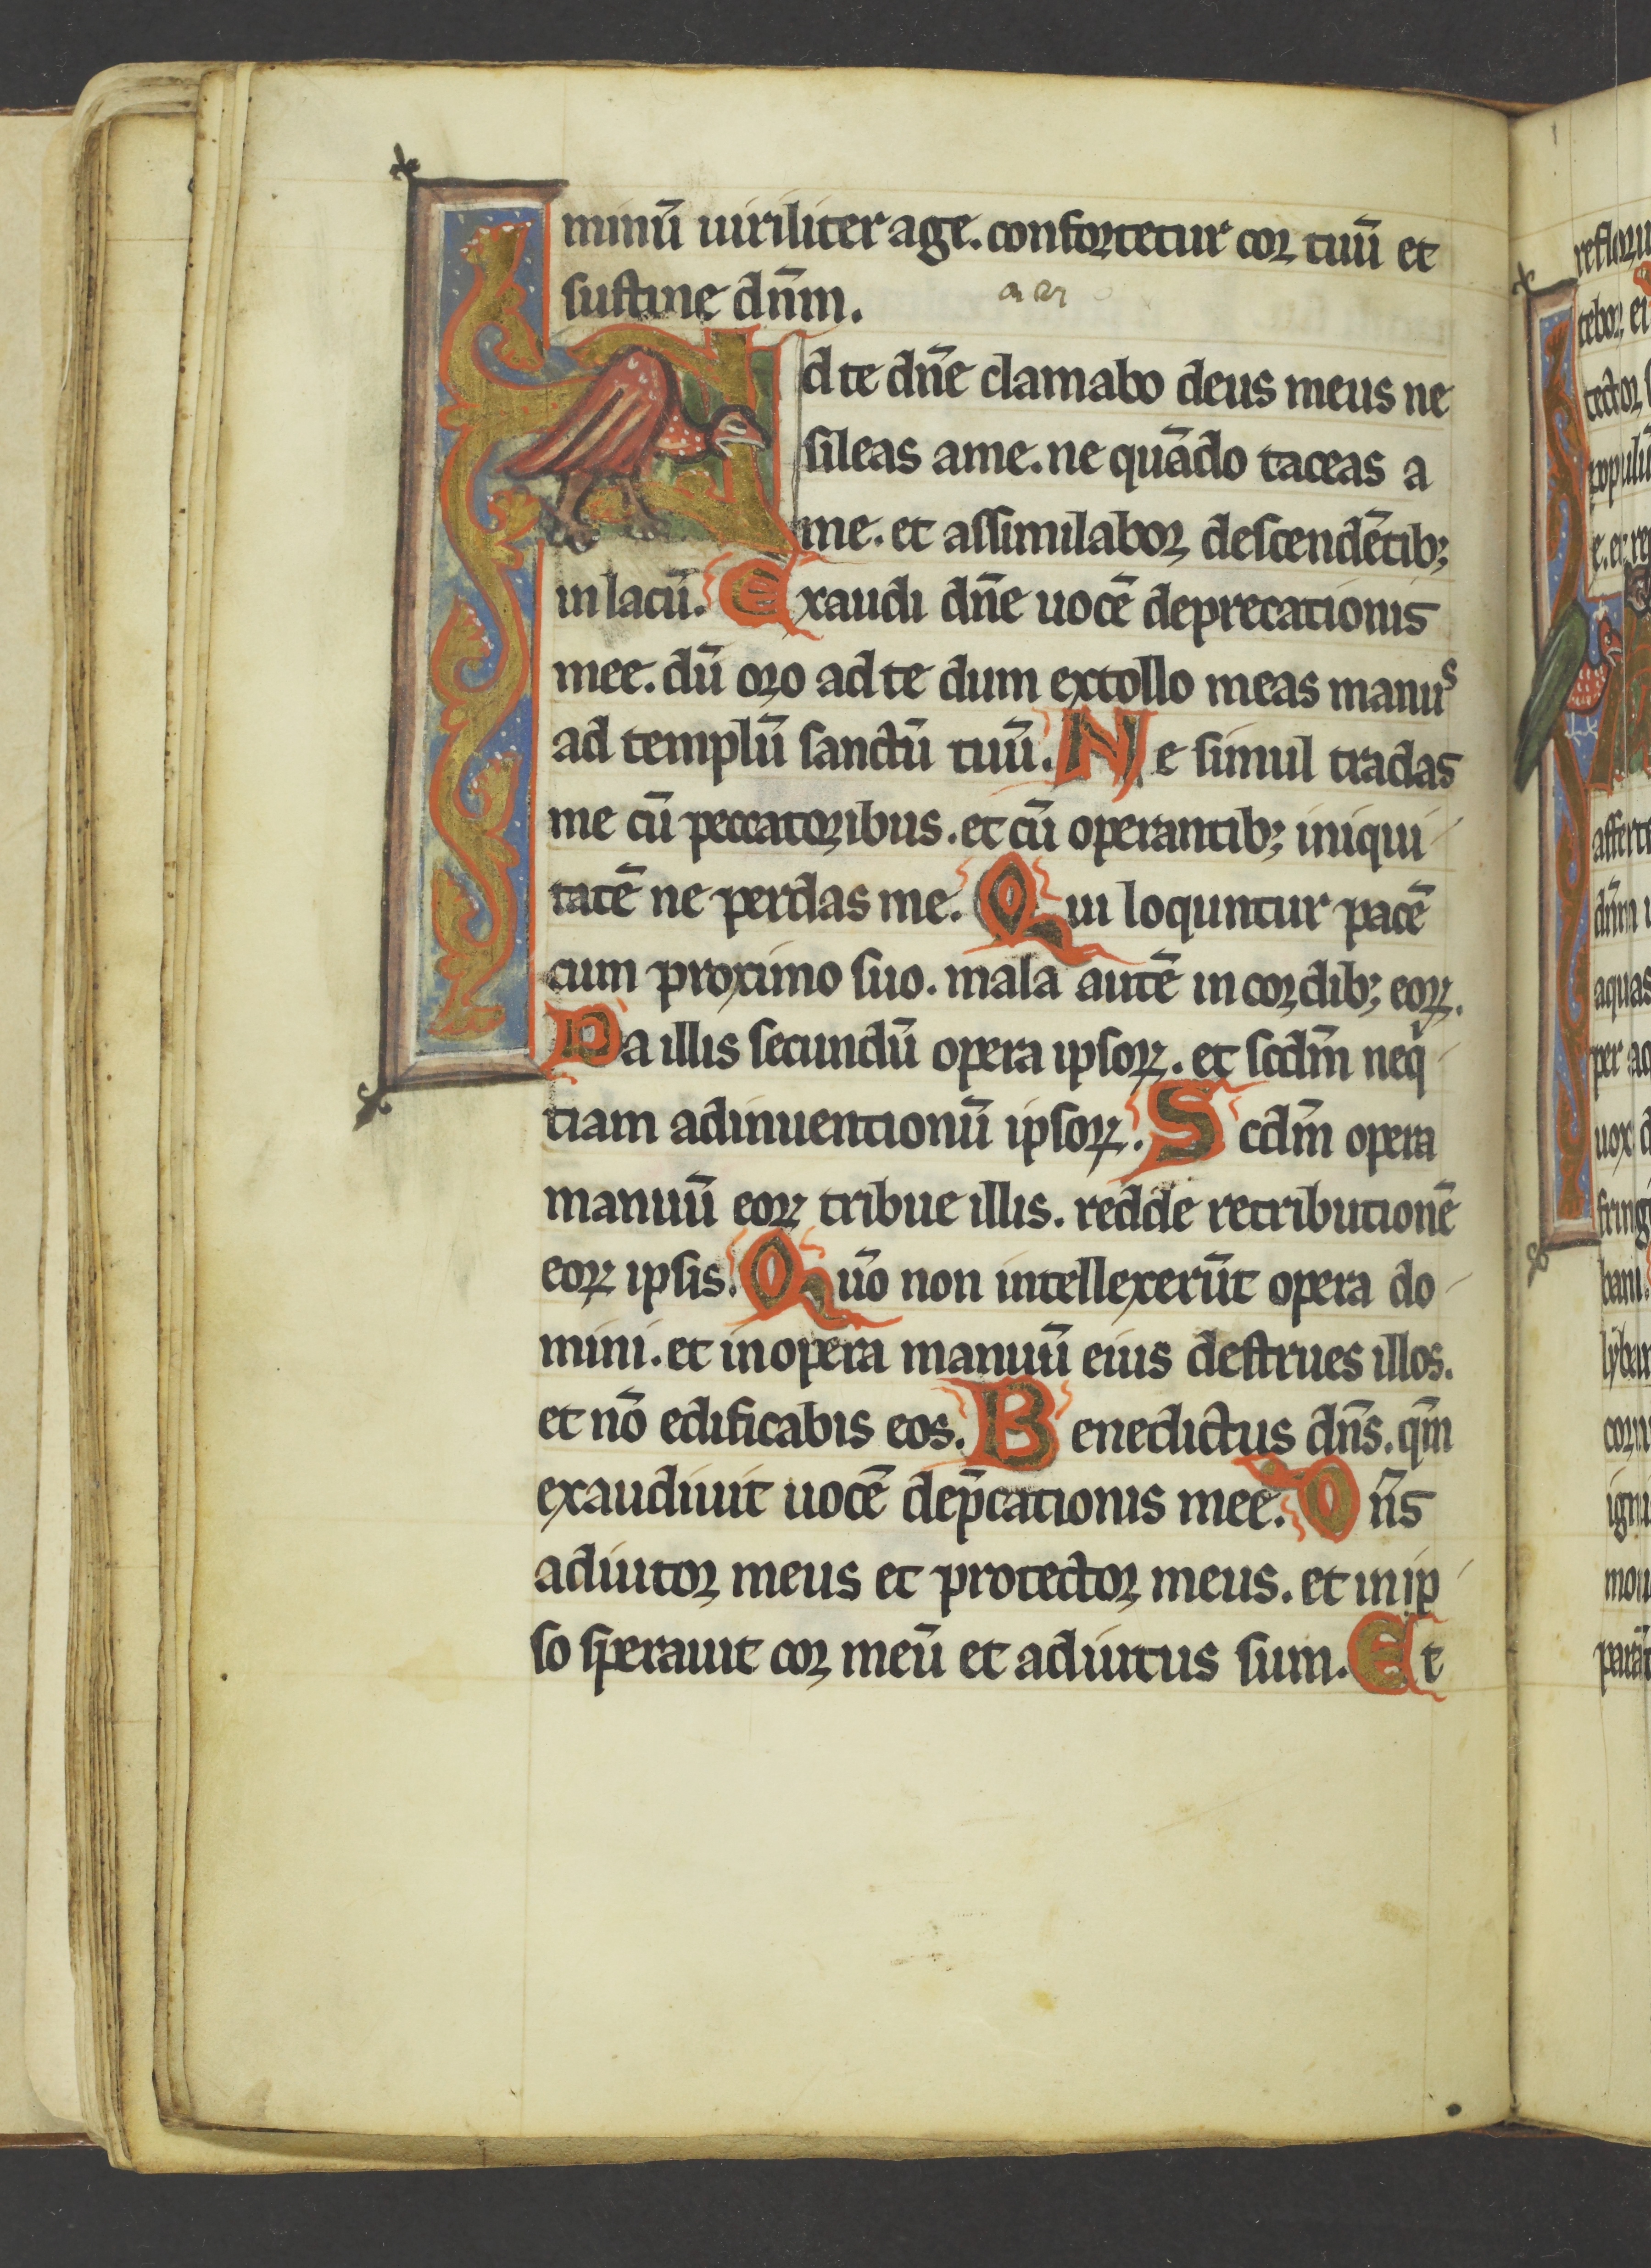 minū uiriliter age. confortetur cor tuū et
sustine dn̄m.
Ad te dn̄e clamabo deus meus ne
sileas ame. ne quādo taceas a
me. et assimilabor descendētib;
in lacū. Exaudi dn̄e uocē deprecationis
mee. dū oro ad te dum extollo meas manus
ad templū sanctū tuū. Ne simul tradas
me cū peccatoribus. et cū operantib; iniqui
tatē ne perdas me. Qui loquntur pacē
cum proximo suo. mala autē in cordib; eoꝝ.
Da illis secundū opera ipsoꝝ. et scdm̄ neq
tiam adinuentionū ipsoꝝ. Scdm̄ opera
manuū eoꝝ tribue illis. redde retributionē
eoꝝ ipsis. Qūo non intellexerūt opera do
mini. et in opera manuū eius destrues illos.
et nō edificabis eos. Benedictus dn̄s. qm̄
exaudiuit uocē dep̄cationis mee. Dn̄s
adiutor meus et protector meus. et in ip
so sperauit cor meū et adiutus sum. Et